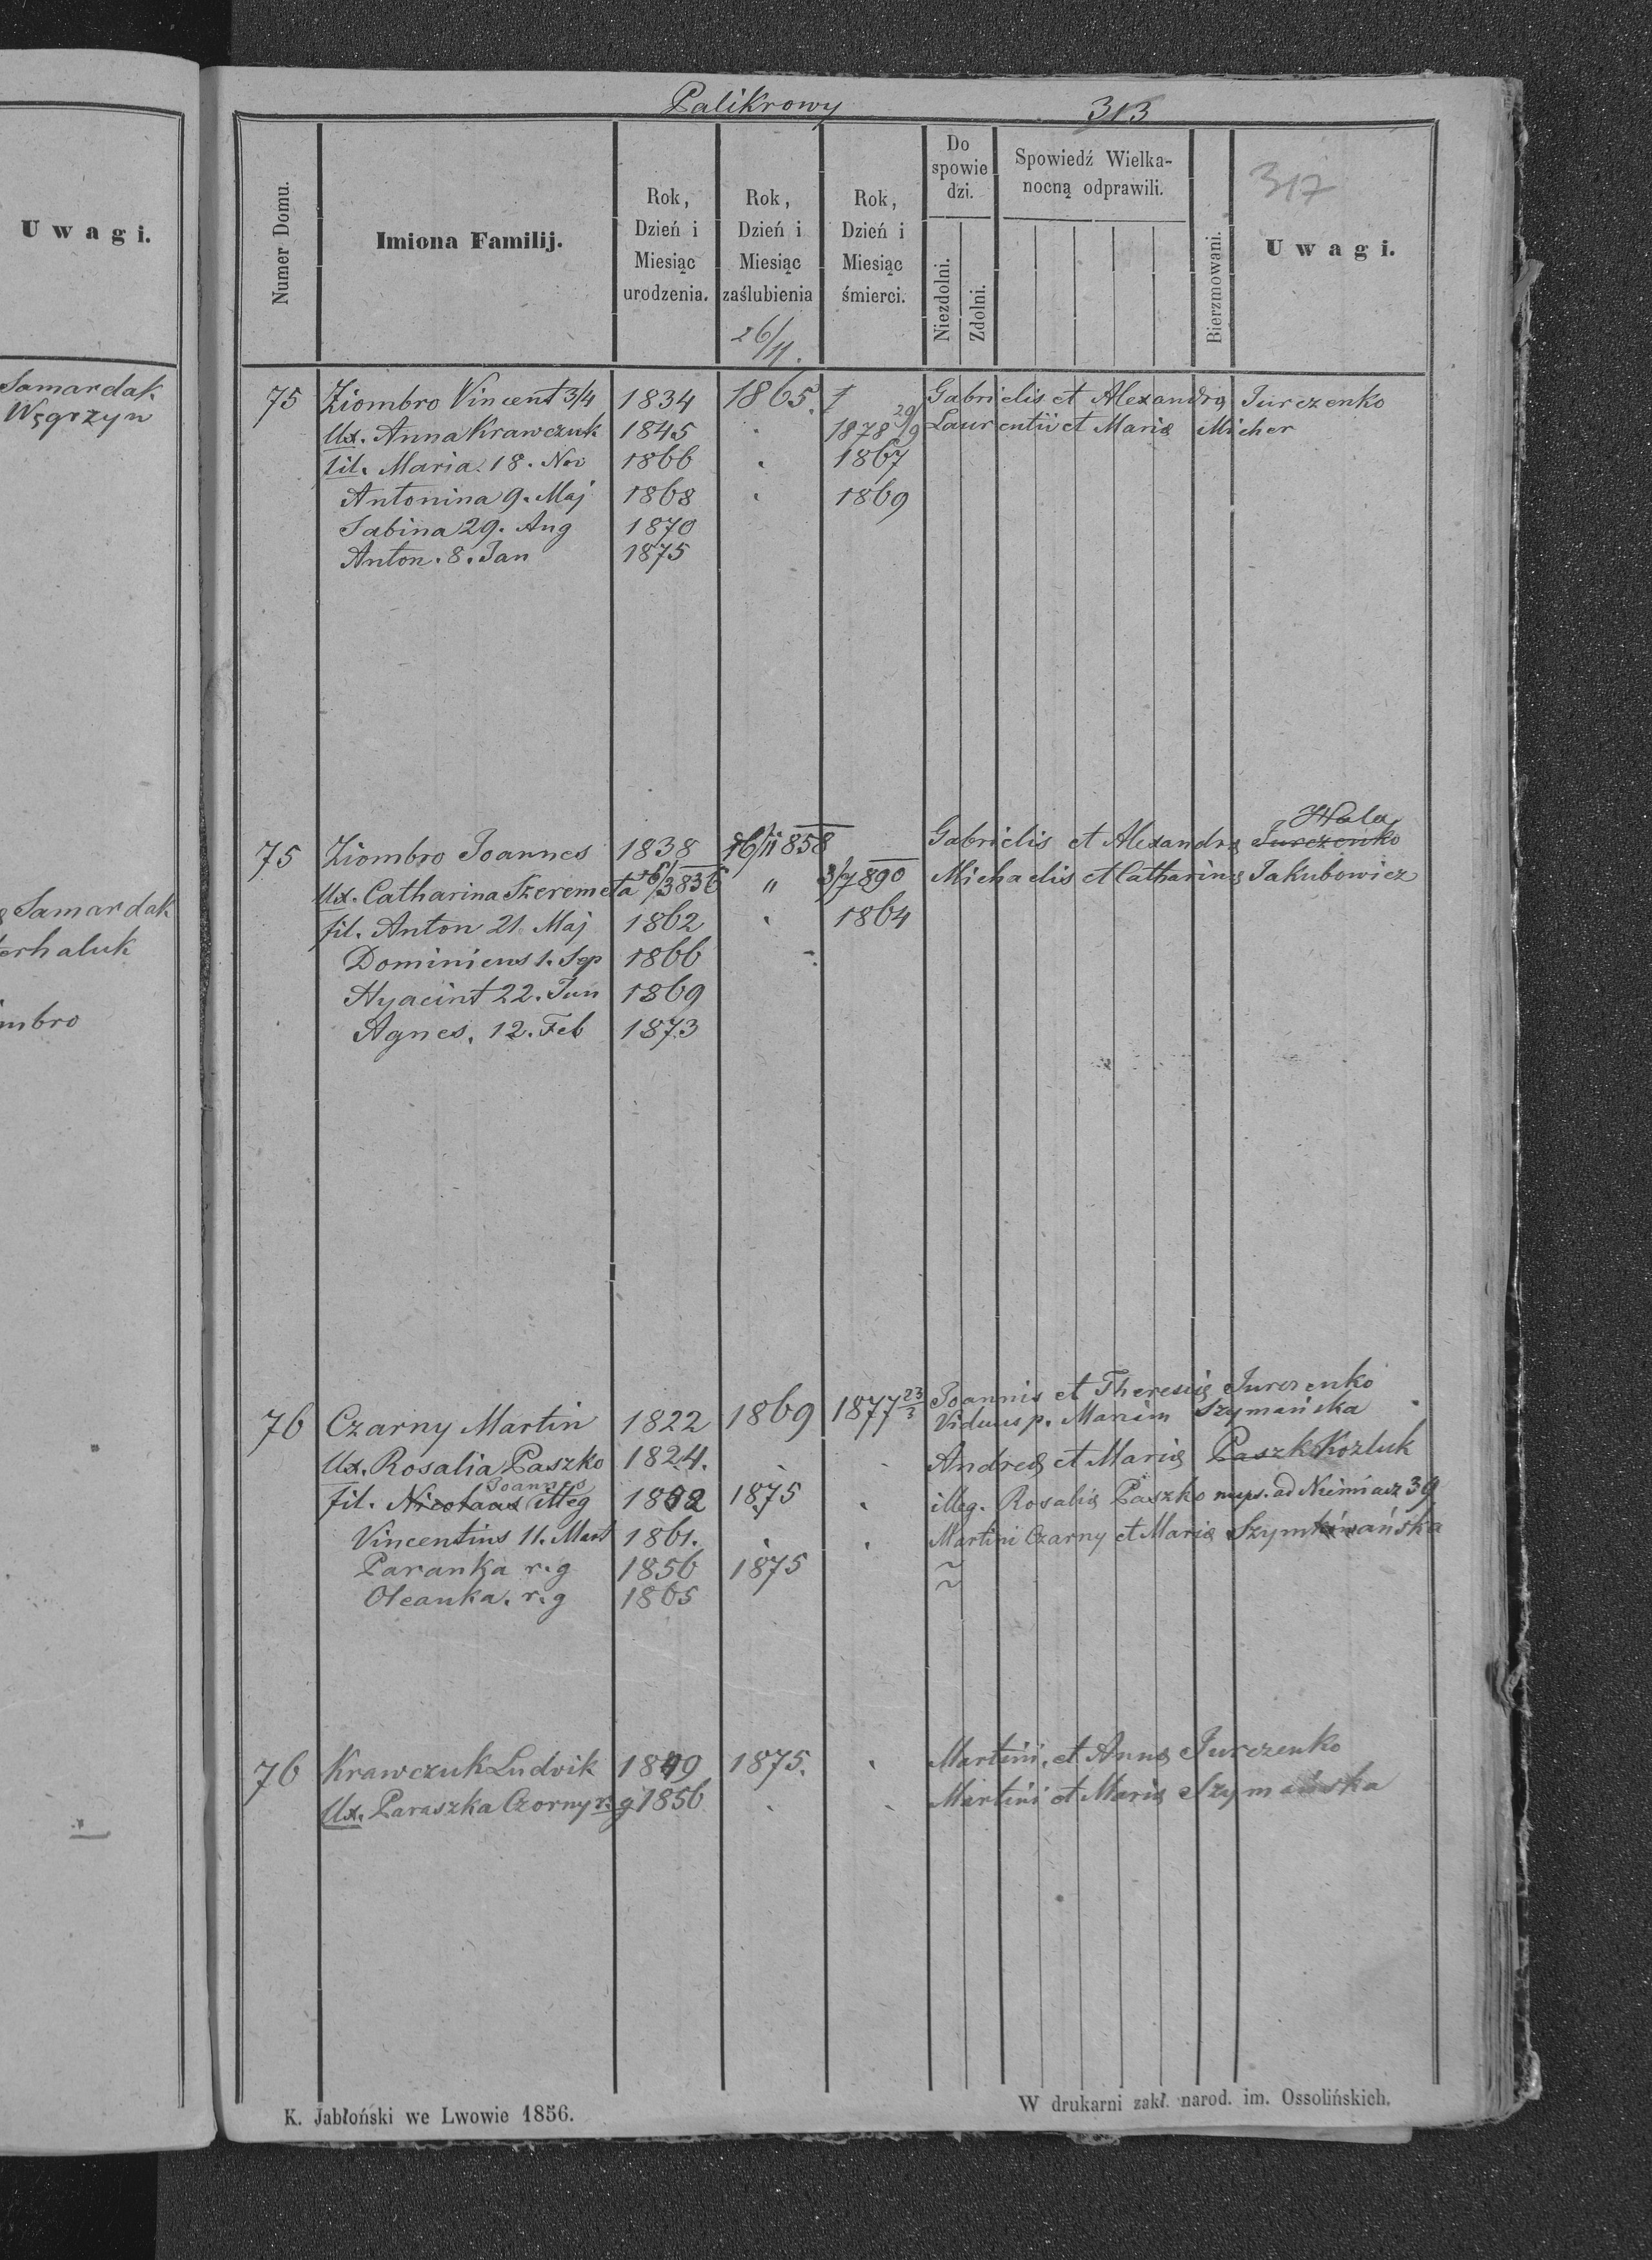 U w a g i.
Samardak
Węgrzyn
Samardak
erhaluk
mbro
Palikrowy 313
Numer Domu.
Imiona Familij.
Rok, Dzień i Miesiąc urodzenia.
Rok, Dzień i Miesiąc zaślubienia
26/11.
Rok, Dzień i Miesiąc śmierci.
Do spowie dzi.
Niezdolni.
Zdolni.
Spowiedź Wielka-
nocną odprawili.
Bierzmowani.
317
U w a g i.
75 Ziombro Vincent 3/4 1834 1865. † Gabrielis et Alexandrę Jurczenko
Ux. Anna Krawczuk 1845 1878 29/9 Laurentii et Marię Micher
fil. Maria. 18. Nov 1866 1867
Antonina 9. Maj 1868 1869
Sabina 29. Aug 1870
Anton. 8. Jan 1875
Hala
75 Ziombro Joannes 1838 16/11 858 Gabrielis et Alexandrę Jurczenko
Ux. Catharina Szeremeta 26/3 836 " 3/7 890 Michaelis et Catharinę Jakubowicz
fil. Anton 21. Maj 1862 1864
Dominicus 1. Sep 1866
Hyacint 22. Jun 1869
Agnes. 12. Feb 1873
76 Czarny Martin 1822 1869 1877 23/3 Joannis et Theresię Jurczenko
Viduus p. Mariam Szymańska
Ux. Rosalia Paszko 1824. Andreę et Marię Paszk Kozluk
Joannes
fil. Nicolaus illeg 1852 1875 illeg. Rosalię Paszko nups. ad Niemiacz 39
Vincentius 11. Mart 1861. Martini Czarny et Marię Szymańska
Paranka r. g 1856 1875 ~
Oleanka. r. g 1865 ~
76 Krawczuk Ludvik 1849 1875. Martini. et Annę Jurczenko
Ux. Paraszka Czorny r. g 1856 Martini et Marię Szymańska
K. Jabłoński we Lwowie 1856.
W drukarni zakł. narod. im. Ossolińskich.